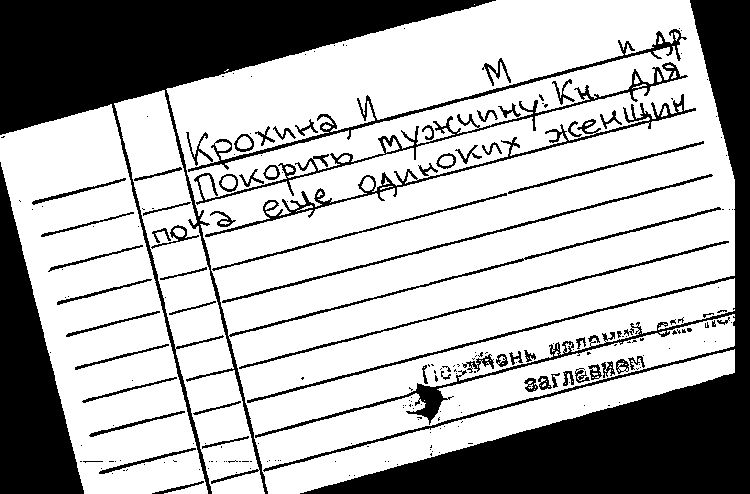 Крохина, И М и др.
Покорить мужчину: Кн. для
пока еще одиноких женщин
Перечень изданий см. под
заглавием